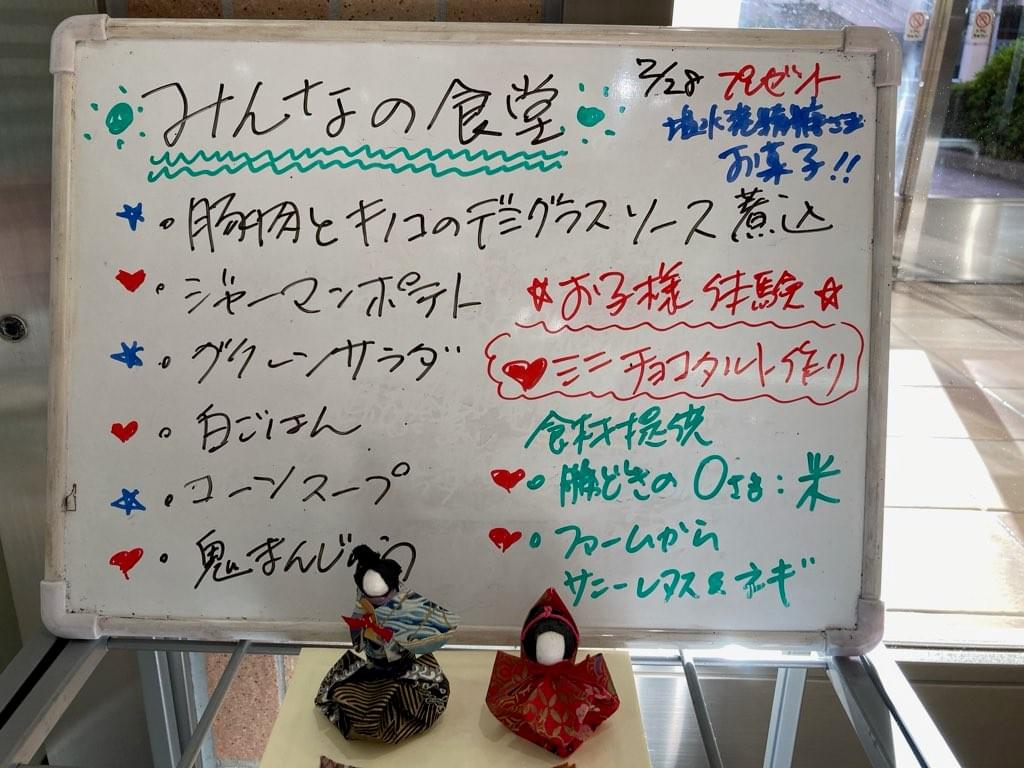 みんなの食堂
2/28 プレゼント
塩水港精糖さま
お菓子!!
・豚肉とキノコのデミグラスソース煮込
・ジャーマンポテト
・グリーンサラダ
・白ごはん
・コーンスープ
・鬼まんじゅう
☆お子様体験☆
♥ミニチョコタルト作り
食材提供
♥・勝どきのOさま:米
♥・ファームから
サニーレタス&ネギ